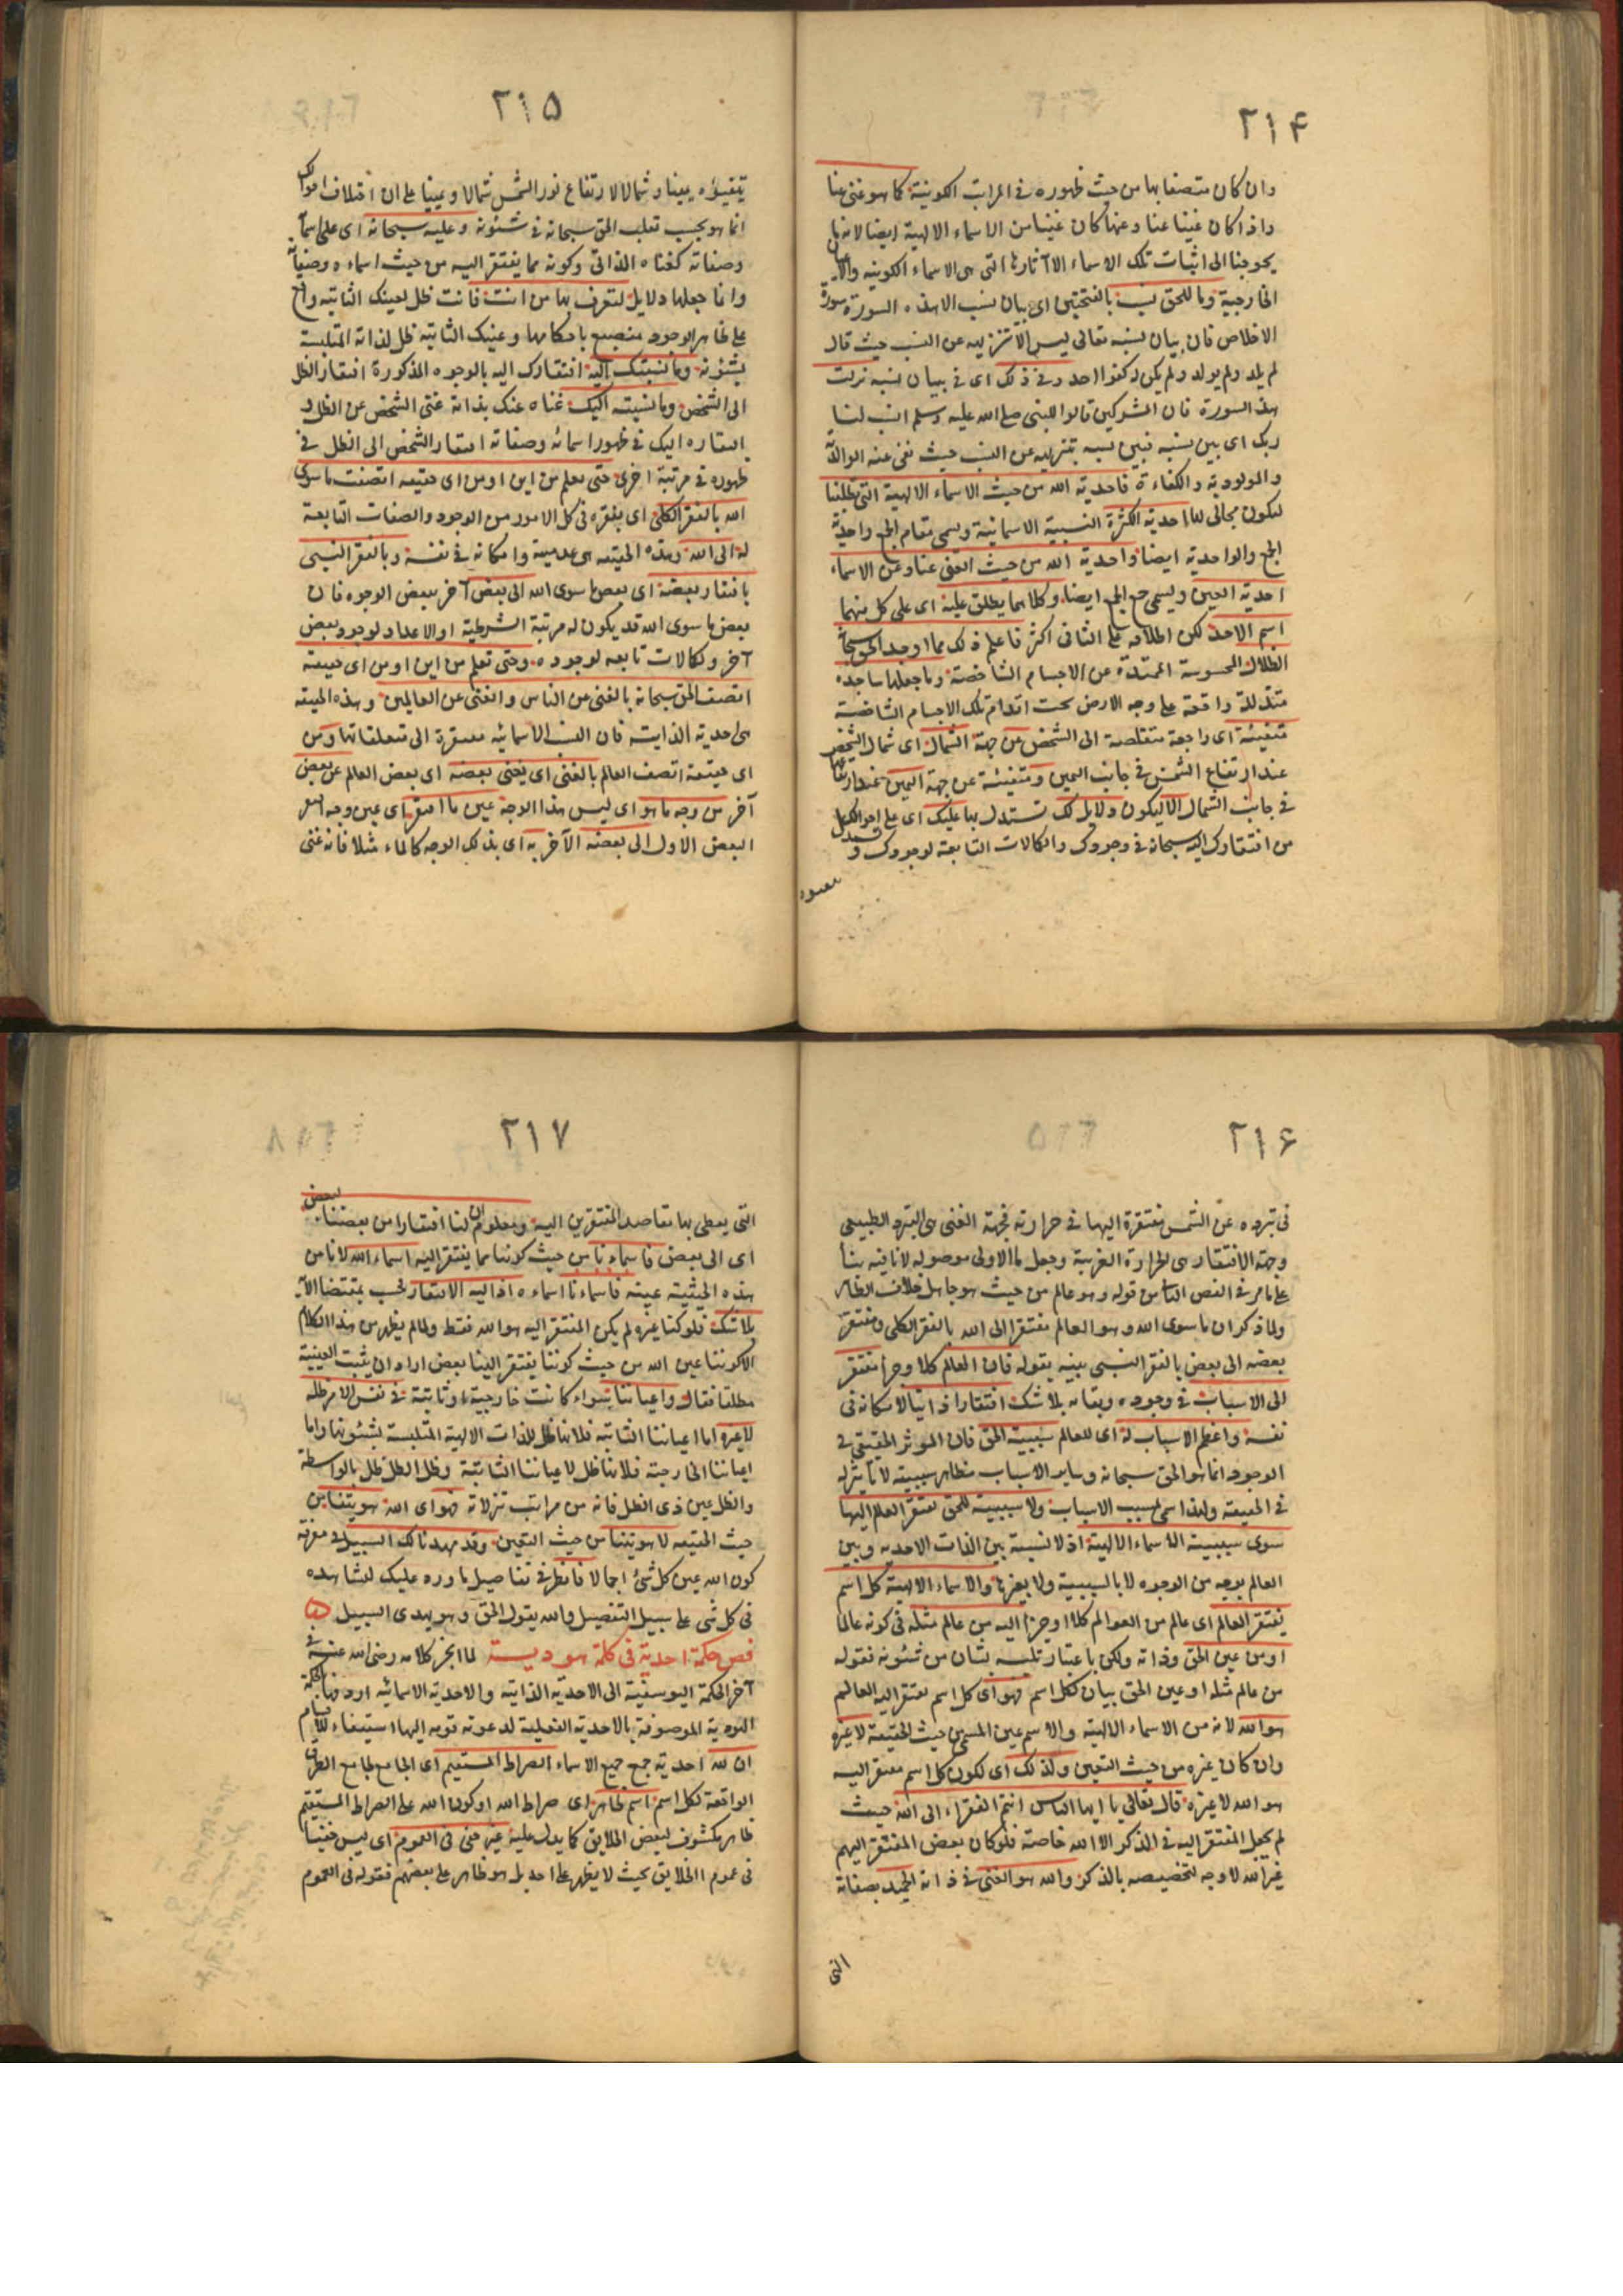 ٢١۴
وان كان متصفا بها من حيث ظهوره فى المراتب الكونية كما هو غنى عنا
واذا كان غنيا عنا وعنها كان غنيا من الاسماء الالهية ايضا لانه ما
يحوجنا الى اثبات تلك الاسماء الا آثارها التى هى الاسماء الكونيه
الخارجية وما للحق نسب بالفتحتين اى بيان نسب الا هذه السورة سورة
الاخلاص فان بيان نسبه تعالى ليس الا تنزيهه عن النسب حيث قال
لم يلد ولم يولد ولم يكن له كفوا احد وفى ذلك اى فى بيان نسبه نزلت
هذه السورة فان المشركين قالوا للنبى صلى الله عليه وسلم انسب لنا
ربك اى بين نسبه فبين نسبه بتنزيهه عن النسب حيث نفى عنه الوالدية
والمولودية والكفاءة فاحدية الله من حيث الاسماء الالهية التى تطلبنا
لنكون مجالى لها احدية الكثرة النسبية الاسمائية ويسمى مقام الجمع واحدية
الجمع والواحدية ايضا واحدية الله من حيث الغنى عنا وعن الاسماء
احدية العين ويسمى جمع الجمع ايضا وكلاهما يطلق عليه اى على كل منهما
اسم الاحد لكن اطلاقه على الثانى اكثر فاعلم ذلك فما اوجد الحق سبحانه
الظلال المحسوسة الممتدة عن الاجسام الشاخصة وما جعلها ساجده
متذللة واقعة على وجه الارض تحت اقدام تلك الاجسام الشاخصة
متفيئة اى راجعة متقلصة الى الشخص عن جهة الشمال اى شمال الشخص
عند ارتفاع الشمس فى جانب اليمين ومتفيئة عن جهة اليمين عند ارتفاعها
فى جانب الشمال الا ليكون دلايل لك تستدل بها عليك اى على احوالك
من افتقارك اليه سبحانه فى وجودك والكمالات التابعة لوجودك و
٢١۵
يتفيؤه يمينا وشمالا لارتفاع نور الشمس شمالا ويمينا على ان اختلاف احوالك
انما هو بحسب تقلب الحق سبحانه فى شئونه وعليه سبحانه اى على اسمائه
وصفاته كغناه الذاتى وكونه مما يفتقر اليه من حيث اسماءه وصفاته
وانما جعلها دلايل لتعرف بها من انت فانت ظل لعينك الثابتيه واقع
على ظاهر الوجود منصبغ باحكامها وعينك الثابتيه ظل لذاته المتلبسة
بشئونه وما نسبتك اليه افتقارك اليه بالوجوه المذكورة افتقار الظل
الى الشخص وما نسبته اليك غناه عنك بذاته غنى الشخص عن الظل و
افتقاره اليك فى ظهور اسمائه وصفاته افتقار الشخص الى الظل فى
ظهوره فى مرتبة اخرى حتى تعلم من اين او من اى حقيقه اتصفت ما سوى
الله بالفقر الكلى اى بفقره فى كل الامور من الوجود والصفات التابعة
له الى الله وهذه الحقيقه هى عدميته وامكانه فى نفسه وبالفقر النسبى
بافتقار بعضه اى بعض ما سوى الله الى بعض آخر ببعض الوجوه فان
بعض ما سوى الله قد يكون له مرتبة الشرطية او الاعداد لوجود بعض
آخر ولكمالات تابعه لوجوده وحتى تعلم من اين او من اى حقيقه
اتصف الحق سبحانه بالغنى عن الناس والغنى عن العالمين وهذه الحقيقه
هى احدية الذاتيه فان النسب الاسمائيه مفتقرة الى متعلقاتها ومن
اى حقيقة اتصف العالم بالغنى اى بغنى بعضه اى بعض العالم عن بعض
آخر من وجه ما هو اى ليس هذا الوجه عين ما افتقر اى عين وجه افتقر
البعض الاول الى بعضه الآخر به اى بذلك الوجه كالماء مثلا فانه غنى
٢١۶
فى تبرده عن الشمس مفتقرة اليها فى حرارته فجهة الغنى هى البرودة الطبيعى
وجهة الافتقار هى الحرارة الغريبة وجعل ما الاولى موصوله لا نافيه بناء
على ما مر فى الفص الثامن قوله وهو عالم من حيث هو جاهل خلاف الظاهر
ولما ذكر ان ما سوى الله وهو العالم مفتقر الى الله بالفقر الكلى ومفتقر
بعضه الى بعض بالفقر النسبى بينه بقوله فان العالم كلا وجزأ مفتقر
الى الاسباب فى وجوده وبقائه بلا شك افتقارا ذاتيا لامكانه فى
نفسه واعظم الاسباب له اى للعالم سببية الحق فان المؤثر الحقيقى فى
الوجود انما هو الحق سبحانه وساير الاسباب مظاهر سببيته لا تأثير له
فى الحقيقه ولهذا سمى مسبب الاسباب ولا سببية للحق تفتقر العالم اليها
سوى سببية الاسماء الالهية اذ لا نسبة بين الذات الاحديه وبين
العالم بوجه من الوجوه لا بالسببية ولا بغيرها والاسماء الالهية كل اسم
يفتقر العالم اى عالم من العوالم كلا او جزأ اليه من عالم مثله فى كونه عالما
او من عين الحق وذاته ولكن باعتبار تلبسه بشأن من شئونه فقوله
من عالم مثله او عين الحق بيان لكل اسم فهو اى كل اسم يفتقر اليه العالم
هو الله لانه من الاسماء الالهية والاسم عين المسمى من حيث الحقيقة لا غيره
وان كان غيره من حيث التعين ولذلك اى لكون كل اسم مفتقر اليه
هو الله لا غيره قال تعالى يا ايها الناس انتم الفقراء الى الله حيث
لم يجعل المفتقر اليه فى الذكر الا الله خاصة فلو كان بعض المفتقر اليهم
غير الله لا وجه لتخصيصه بالذكر والله هو الغنى فى ذاته الحميد بصفاته
التى
٢١٧
التى يعطى بها مقاصد المفتقرين اليه ومعلوم ان لنا افتقارا من بعضنا لبعض
اى الى بعض فاسماءنا من حيث كوننا مما يفتقر اليه اسماء الله لانا من
هذه الحيثية عينه فاسماءنا اسماءه اذ اليه الافتقار فحسب بمقتضى الآية
بلا شك فلو كنا غيره لم يكن المفتقر اليه هو الله فقط ولما لم يظهر من هذا الكلام
الا كوننا عين الله من حيث كوننا يفتقر الينا بعض اراد ان يثبت العينية
مطلقا فقال واعياننا سواء كانت خارجية او ثابتة فى نفس الامر ظله
لا غيره اما اعياننا الثابته فلانها ظل للذات الالهية المتلبسة بشئونها واما
اعياننا الخارجية فلانها ظل لاعياننا الثابتة وظل الظل ظل بالواسطة
والظل عين ذى الظل فانه من مراتب تنزلاته فهو اى الله هويتنا من
حيث الحقيقه لا هويتنا من حيث التعين وقد مهدنا لك السبيل فى معرفة
كون الله عين كل شئ اجمالا فانظر فى تفاصيل ما ورد عليك لتشاهده
فى كل شى على سبيل التفصيل والله يقول الحق وهو يهدى السبيل
فص حكمة احدية فى كلمة هودية لما انجر كلامه رضى الله عنه فى
آخر الحكمة اليوسفية الى الاحدية الذاتيه والاحدية الاسمائيه اردفها بالحكمة
الهودية الموصوفة بالاحدية الفعلية لدعوته قومه اليها استيفاء للاقسام
ان لله احدية جمع جميع الاسماء الصراط المستقيم اى الجامع لجامع الطرق
الواقعة لكل اسم اسم ظاهر اى صراط الله او كون الله على الصراط المستقيم
ظاهر مكشوف لبعض الخلايق كما يدل عليه غير خفى فى العموم اى ليس خفيا
فى عموم الخلايق بحيث لا يظهر على احد بل هو ظاهر على بعضهم فقوله فى العموم